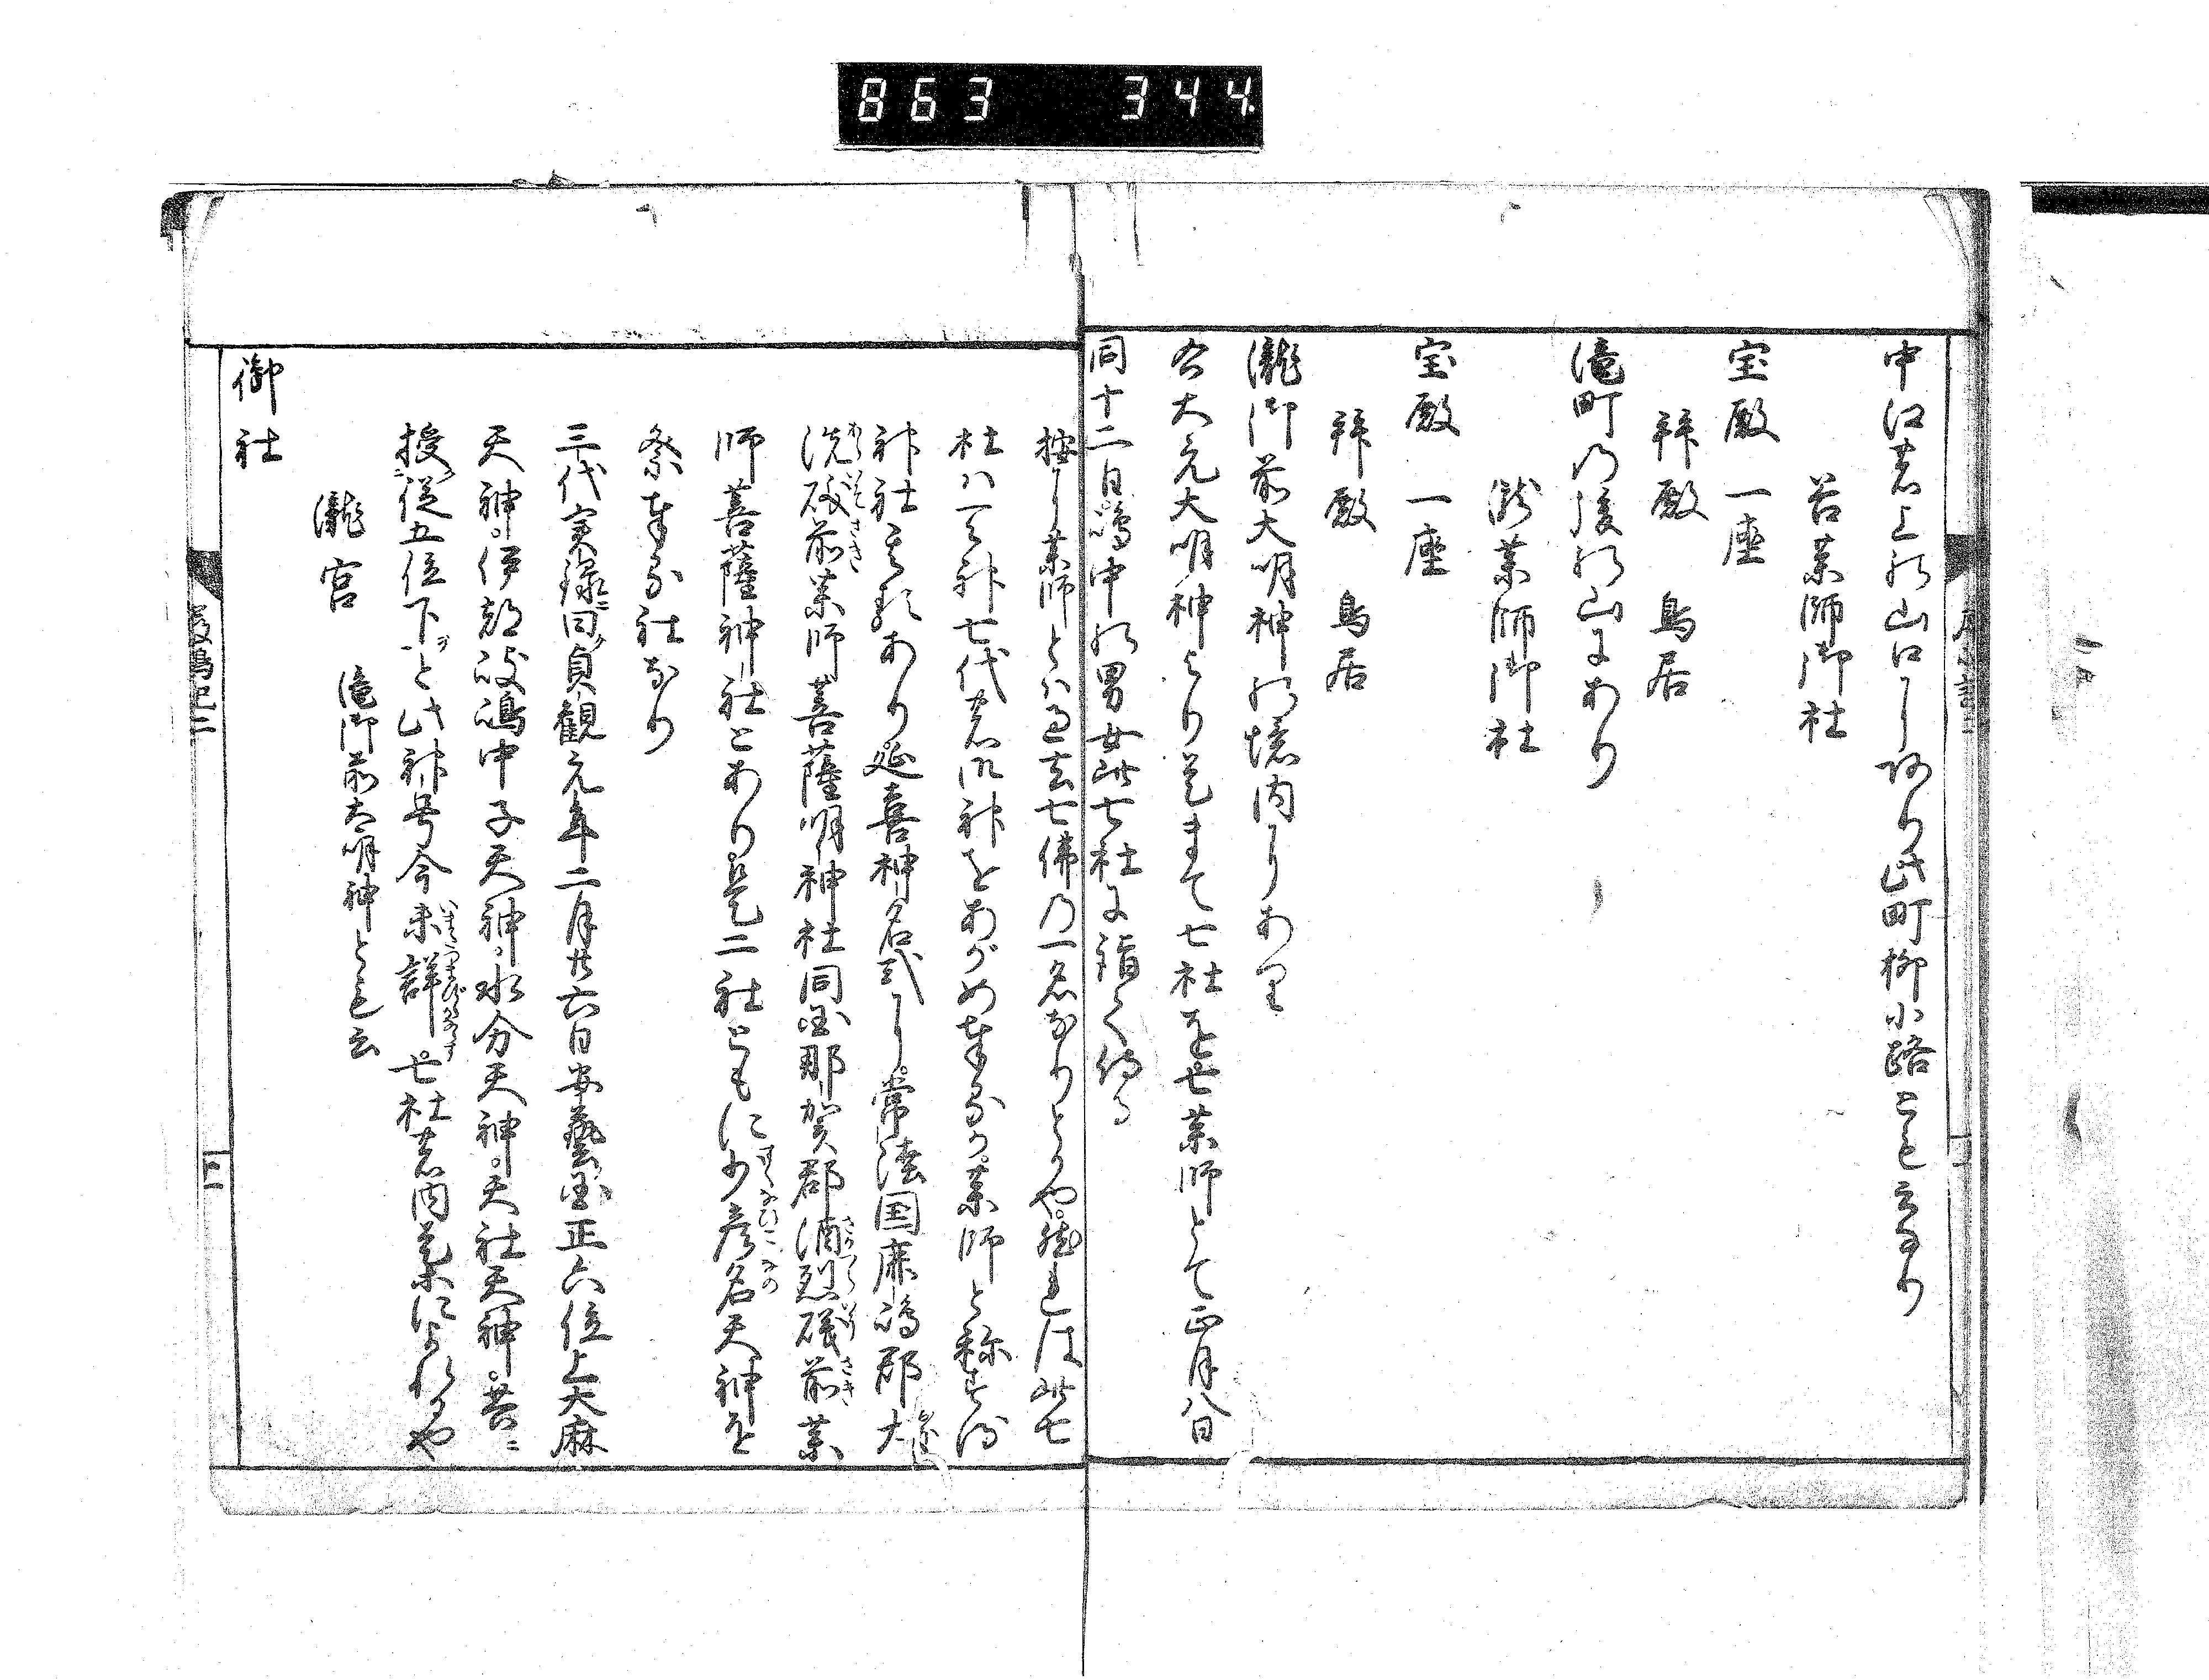 863 344
中江の上の山口にあり此町柳小路とも云なり
苔薬師御社
宝殿一座
拜殿 鳥居
滝町の後の山にあり
瀧薬師御社
宝殿一座
拜殿 鳥居
瀧御前大明神の境内にあり
右大元大明神より是まて七社を七薬師とて正月八日
同十二日嶋中の男女此七社に詣て侍る
按に薬師とは過去七佛乃一名なりとかや然れは此七
社ハ天神七代の御神をあがめ奉るか薬師と称する
神社其数あり延喜神名式に常陸国鹿嶋郡大
洗磯前薬師菩薩明神社同国那賀郡酒烈磯前薬
師菩薩神社とあり是二社ともに少彦名天神を
祭奉る社なり
三代実録曰貞観元年二月廿六日安藝国正六位上大麻
天神伊都岐嶋中子天神水分天神天社天神並ニ
授従五位下ヲと此神号今未詳七社の内是等にてあれるや
瀧宮 滝御前大明神とも云
御社
嚴嶋記二